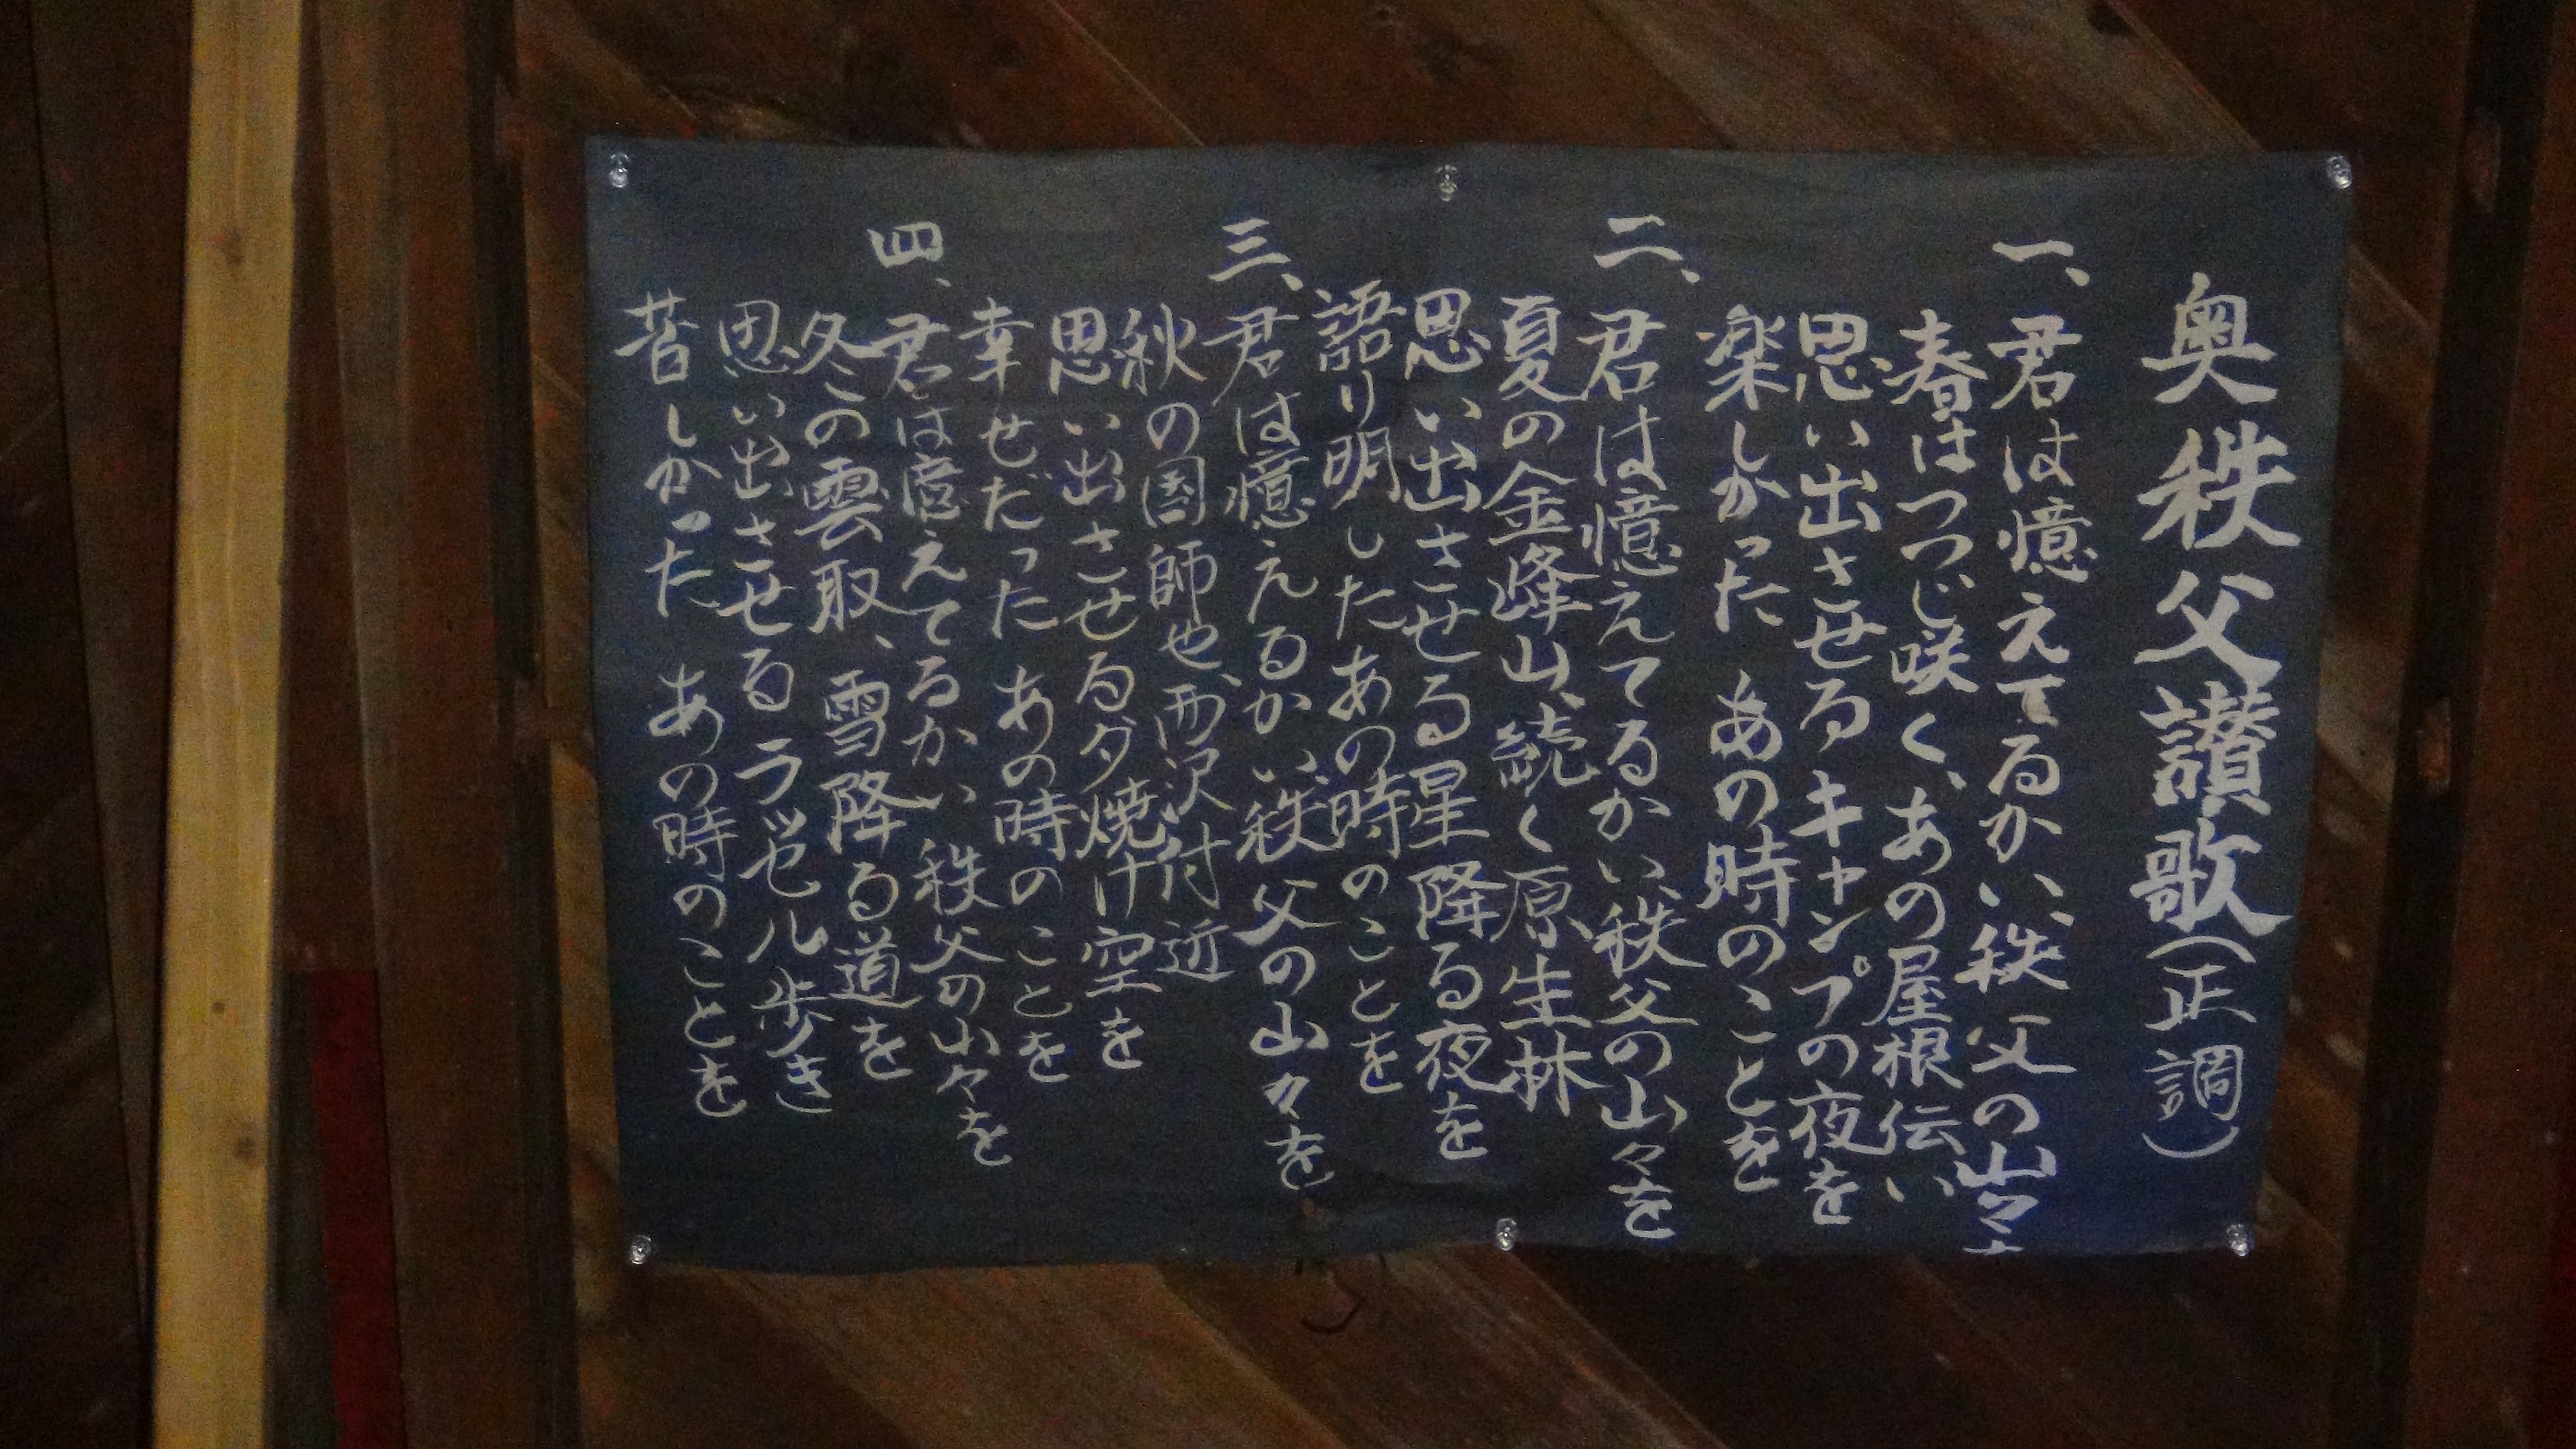 奥秩父讃歌(正調)
一、君は憶えてるかい、秩父の山々を
春はつつじ咲く、あの屋根伝い
思い出させるキャンプの夜を
楽しかった あの時のことを
二、君は憶えてるかい秩父の山々を
夏の金峰山、続く原生林
思い出させる星降る夜を
語り明したあの時のことを
三、君は憶えるかい、秩父の山々を
秋の国師也、西沢付近
思い出させる夕焼け空を
幸せだった あの時のことを
四、君は憶えてるかい 秩父の山々を
冬の雲取、雪降る道を
思い出させる ラッセル歩き
苦しかった あの時のことを